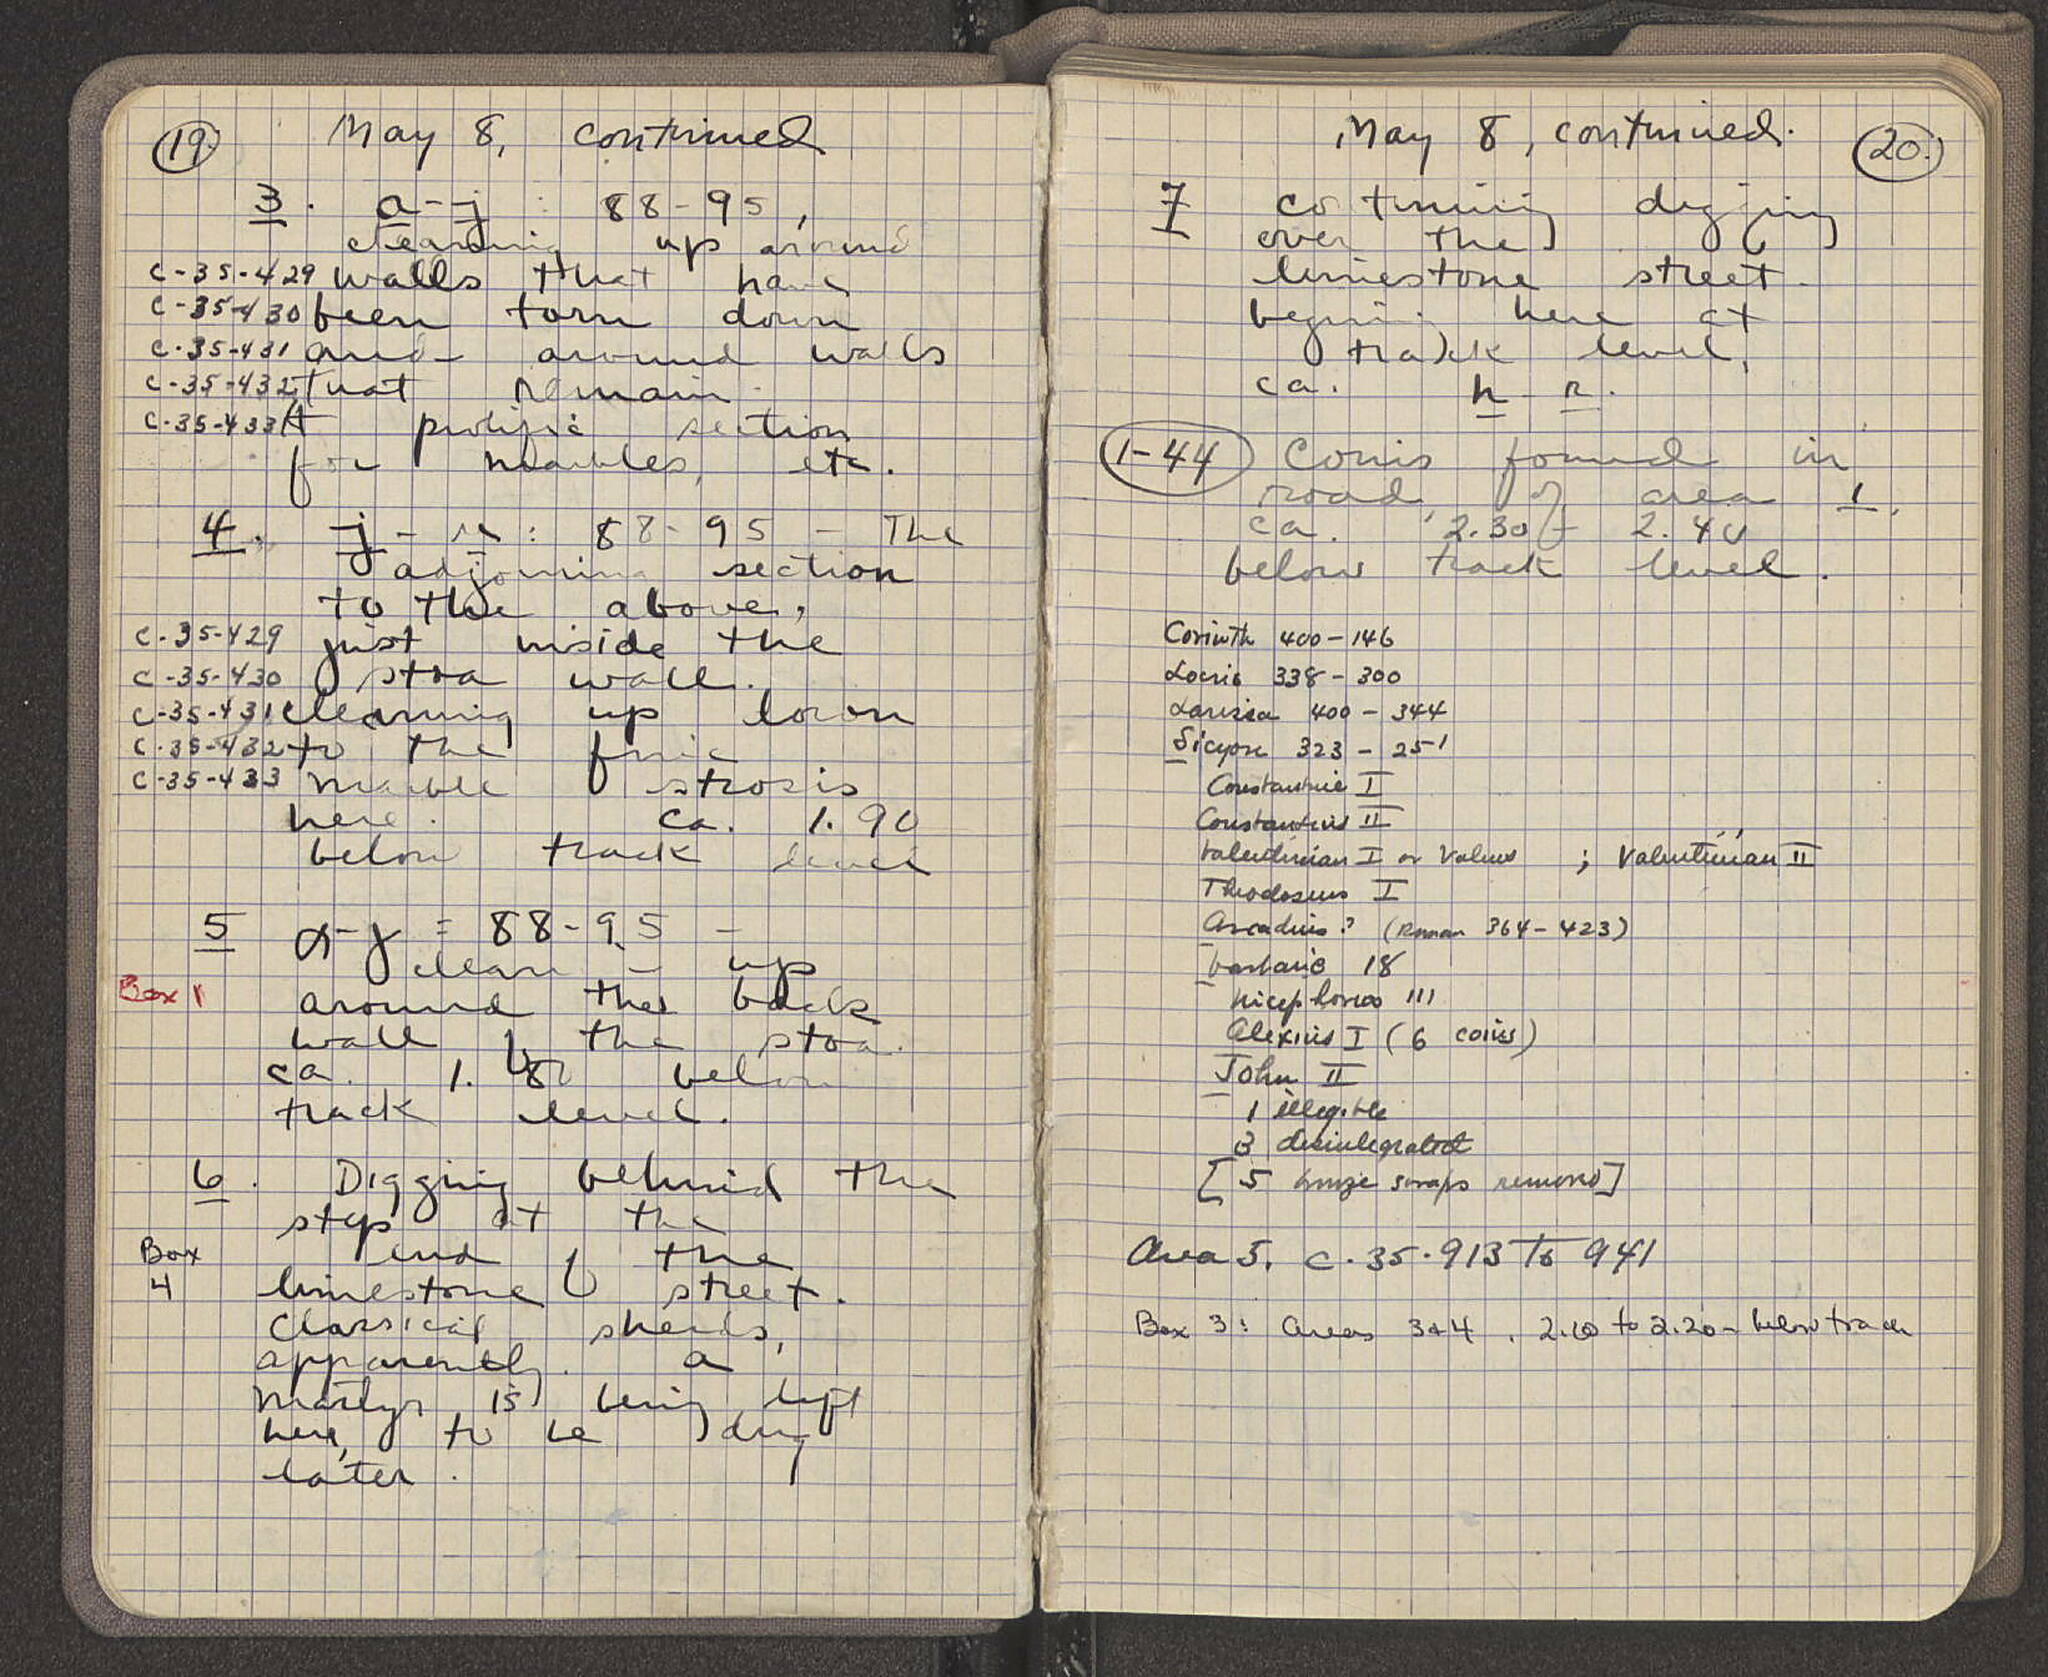 19
May 8, continued
3. a-j : 88-95,
cleaning up around
C-35-429 walls that have
C-35-430 been torn down
C-35-431 and around walls
C-35-432 that remain.
C-35-433 A prolific section
for marbles, etc.
4. j - n : 88-95 - The
adjoining section
to the above,
C-35-429 just inside the
C-35-430 stoa wall.
C-35-431 cleaning up down
C-35-432 to the fine
C-35-433 marble strosis
here. ca. 1.90
below track level
5 88-95 -
clean - up
Box 1 around the back
wall of the stoa.
ca. 1. below
track level.
6. Digging behind the
step at the
Box end of the
4 limestone street.
Classical sherds,
apparently. a
martyr is being left
here, to be dug
later.
May 8, continued.
20.
7 continuing digging
over the
limestone street.
begin here at
track level,
ca. h - n.
1-44 Coins found in
road of area 1,
ca. 2.30 - 2.40
below track level.
Corinth 400-146
Locris 338-300
Larissa 400-344
Sicyon 323-251
Constantine I
Constantius II
Valentinian I or Valens ; Valentinian II
Theodosius I
Arcadius? (Roman 364-423)
barbaric 18
Nicephorus III
Alexius I (6 coins)
John II
1 illegible
3 disintegrated
[5 bronze scraps removed]
Area 5. C.35.913 to 941
Box 3: Areas 3+4. 2.10 to 2.20 - below track